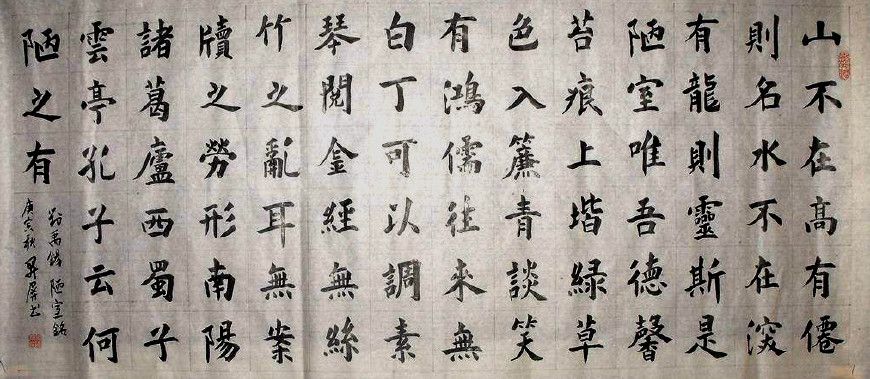 山不在高有僊
則名水不在深
有龍則靈斯是
陋室唯吾德馨
苔痕上堦緑草
色入簾青談笑
有鴻儒往來無
白丁可以調素
琴閱金經無絲
竹之亂耳無案
牘之勞形南陽
諸葛廬西蜀子
雲亭孔子云何
陋之有
劉禹錫 陋室銘
庚寅秋